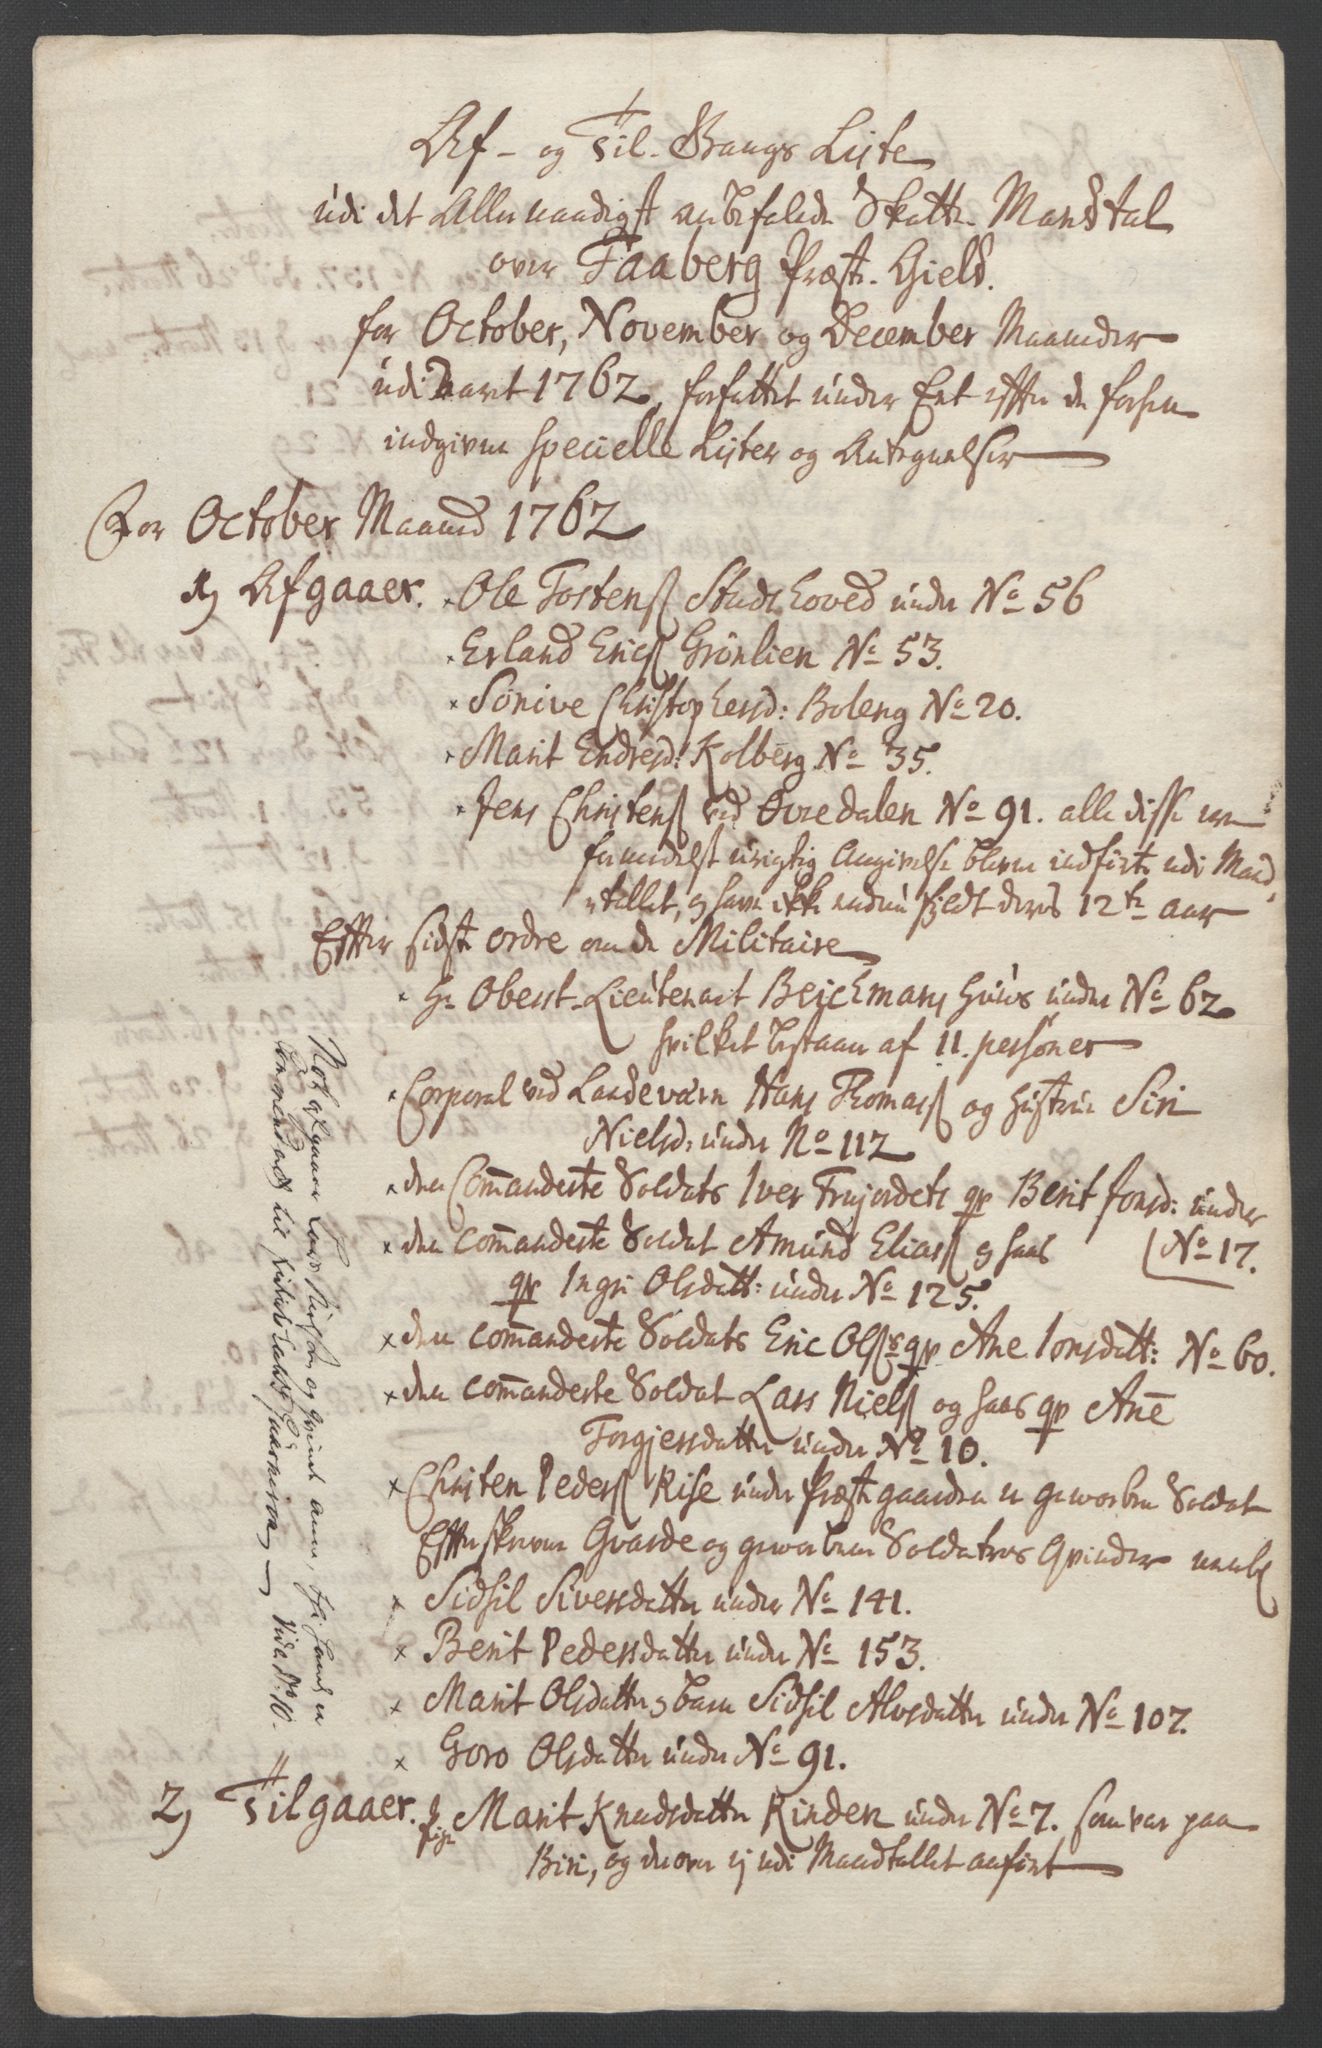 Af- og Til-Gangs Liste
udi det Allernaadigst anbefalede Skatte-Mandtal
over Faaberg Præste-Gield.
for October, November og December Maaneder
udi Aaret 1762, forfattet under Eet efter de forhen
indgivne specielle Lister og Antegnelser
For October Maaned 1762
1) Afgaaer. Ole Tostens Studshoved under No 56
Erland Erics Grönlien No 53.
Sönive Christophersd: Boleng No 20.
Marit Endresd: Kolberg No 35.
Jens Christens ved Övredalen No 91. alle disse ere
formedelst urigtig Angivelse blevne indförte udi Mand-
tallet, og have ikke endnu fyldt deres 12te aar
Efter sidste ordre om de Militaire
Hr Oberst-Lieutenant Beichmans Huus under No 62
hvilket bestaaer af 11. personer
Corporal ved Landeværn Hans Thomass og Hustrue Siri
Nielsd: under No 112
den Commanderte Soldats Iver Trujordets qv Berit Jonsd: under
No 17.
den Commanderte Soldat Amund Eliass og hans
qv Ingri Olsdatt: under No 125.
den Commanderte Soldats Eric Ols qv Ane Jonsdatt: No 60.
den Commanderte Soldat Lars Niels og hans qv Ane
Torgjersdatter under No 10.
Christen Peders Rise under Præstegaarden er geworben Soldat
Efterskrevne Gvarde og geworbene Soldaters Qvinder nembl
Sidsil Siversdatter under No 141.
Berit Pedersdatter under No 153.
Marit Olsdatter og barn Sidsil Alvsdatter under No 107.
Goro Olsdatter under No 91.
2) Tilgaaer. pige Marit Knudsdatter Rinden under No 7. som var paa
Biri, og derover ej udi Mandtallet anfört
Not afgaaer Lars Nielsen og qvinde Anne, thi hand er
Commenderet til Vide No 10.